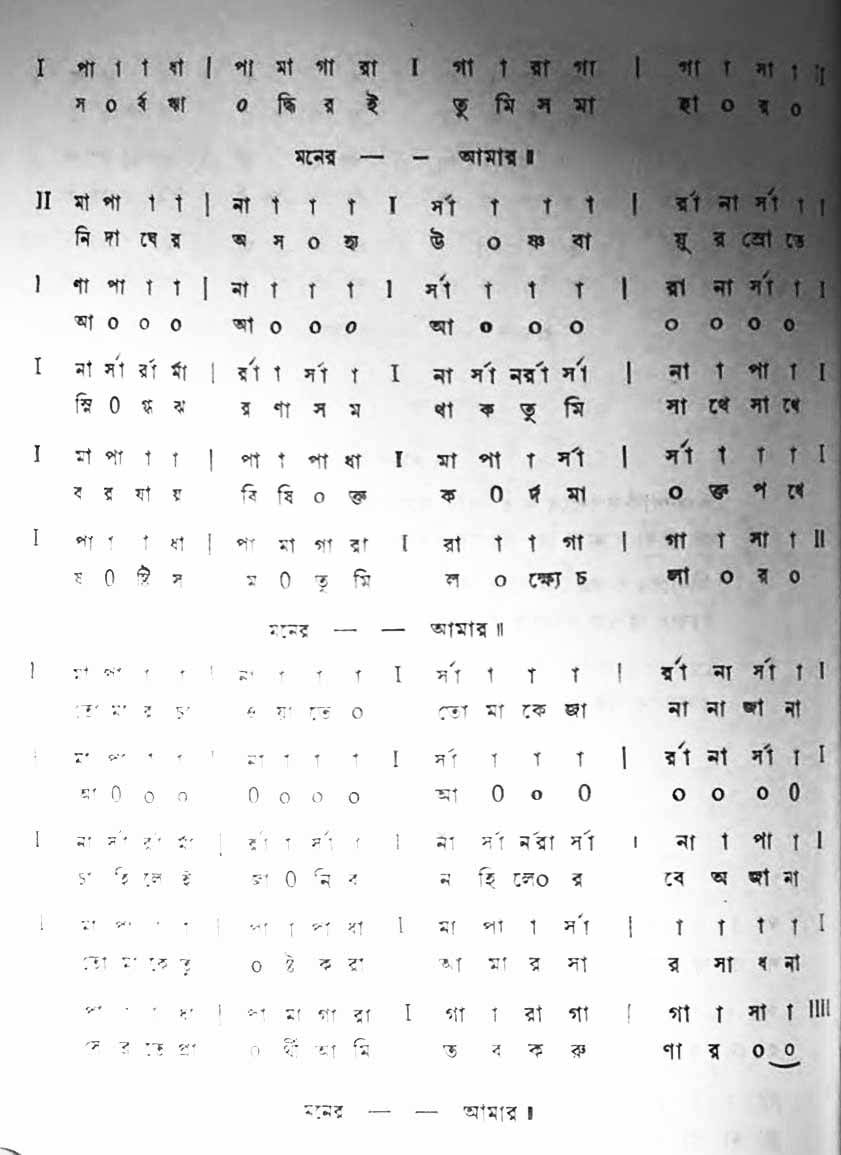 I পা া া ধা | পা মা গা রা I গা া রা গা | গা া সা া II
স ০ র্ব ঋা ০ দ্ধি র ই তু মি স মা হা ০ র ০
মনের — — আমার॥
II মা পা া া | না া া া I র্সা া া া | র্রা না র্সা া I
নি দা ঘে র অ স ০ হ্য উ ০ ষ্ণ বা য়ু র স্রো তে
I ণা পা া া | না া া া I র্সা া া া | রা না র্সা া I
আ ০ ০ ০ আ ০ ০ ০ আ ০ ০ ০ ০ ০ ০ ০
I না র্সা র্রা র্মা | র্রা া র্সা া I না র্সা নর্রা র্সা | না া পা া I
স্নি ০ গ্ধ ঝ র ণা স ম থা ক তু মি সা থে সা থে
I মা পা া া | পা া পা ধা I মা পা া র্সা | র্সা া া া I
ব র ষা য় বি ষি ০ ক্ত ক ০ র্দ মা ০ ক্ত প থে
I পা া া ধা | পা মা গা রা I রা া া গা | গা া সা া II
ষ ০ ষ্টি স ম ০ তু মি ল ০ ক্ষ্যে চ লা ০ র ০
মনের — — আমার॥
I মা পা া া | না া া া I র্সা া া া | র্রা না র্সা া I
তো মা র চা ও য়া তে ০ তো মা কে জা না না জা না
I মা পা া া | না া া া I র্সা া া া | র্রা না র্সা া I
আ ০ ০ ০ ০ ০ ০ ০ আ ০ ০ ০ ০ ০ ০ ০
I না র্সা র্রা র্মা | র্রা া র্সা া I না র্সা নর্রা র্সা | না া পা া I
চা হি লে ই জা ০ নি ব ন হি লে০ র বে অ জা না
I মা পা া া | পা া পা ধা I মা পা া র্সা | া া া া I
তো মা কে তু ০ ষ্ট ক রা আ মা র সা র সা ধ না
পা া া ধা | পা মা গা রা I গা া রা গা | গা া সা া IIII
সে র তে প্রা ০ র্থী আ মি ত ব ক রু ণা র ০ ০
মনের — — আমার॥